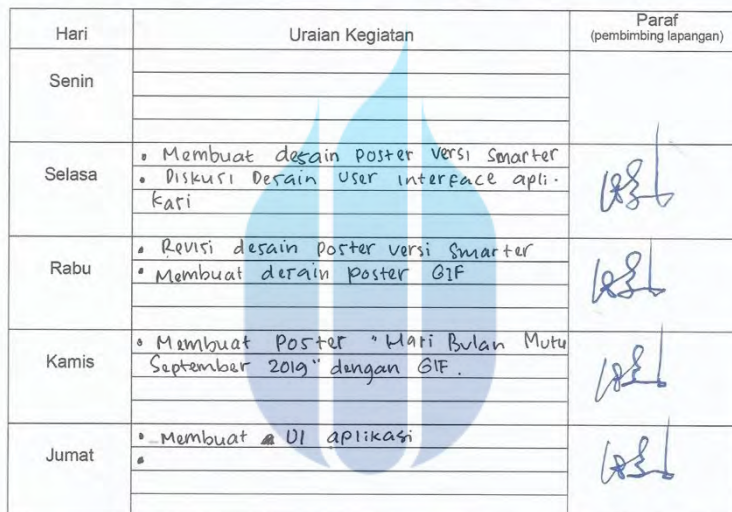 Hari Uraian Kegiatan Paraf
(pembimbing lapangan)
Senin
Selasa
• Membuat desain poster versi smarter
• Diskusi Desain User interface apli-
kasi
Rabu
• Revisi desain poster versi smarter
• Membuat desain poster GIF
Kamis
• Membuat Poster "Hari Bulan Mutu
September 2019" dengan GIF.
Jumat
• Membuat UI aplikasi
•